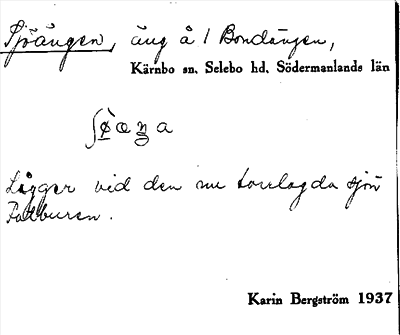 Sjöängen, äng å 1 Bondängen,
Kärnbo sn. Selebo hd. Södermanlands län
Ligger vid den nu torrlagda sjön
Fatburen.
Karin Bergström 1937